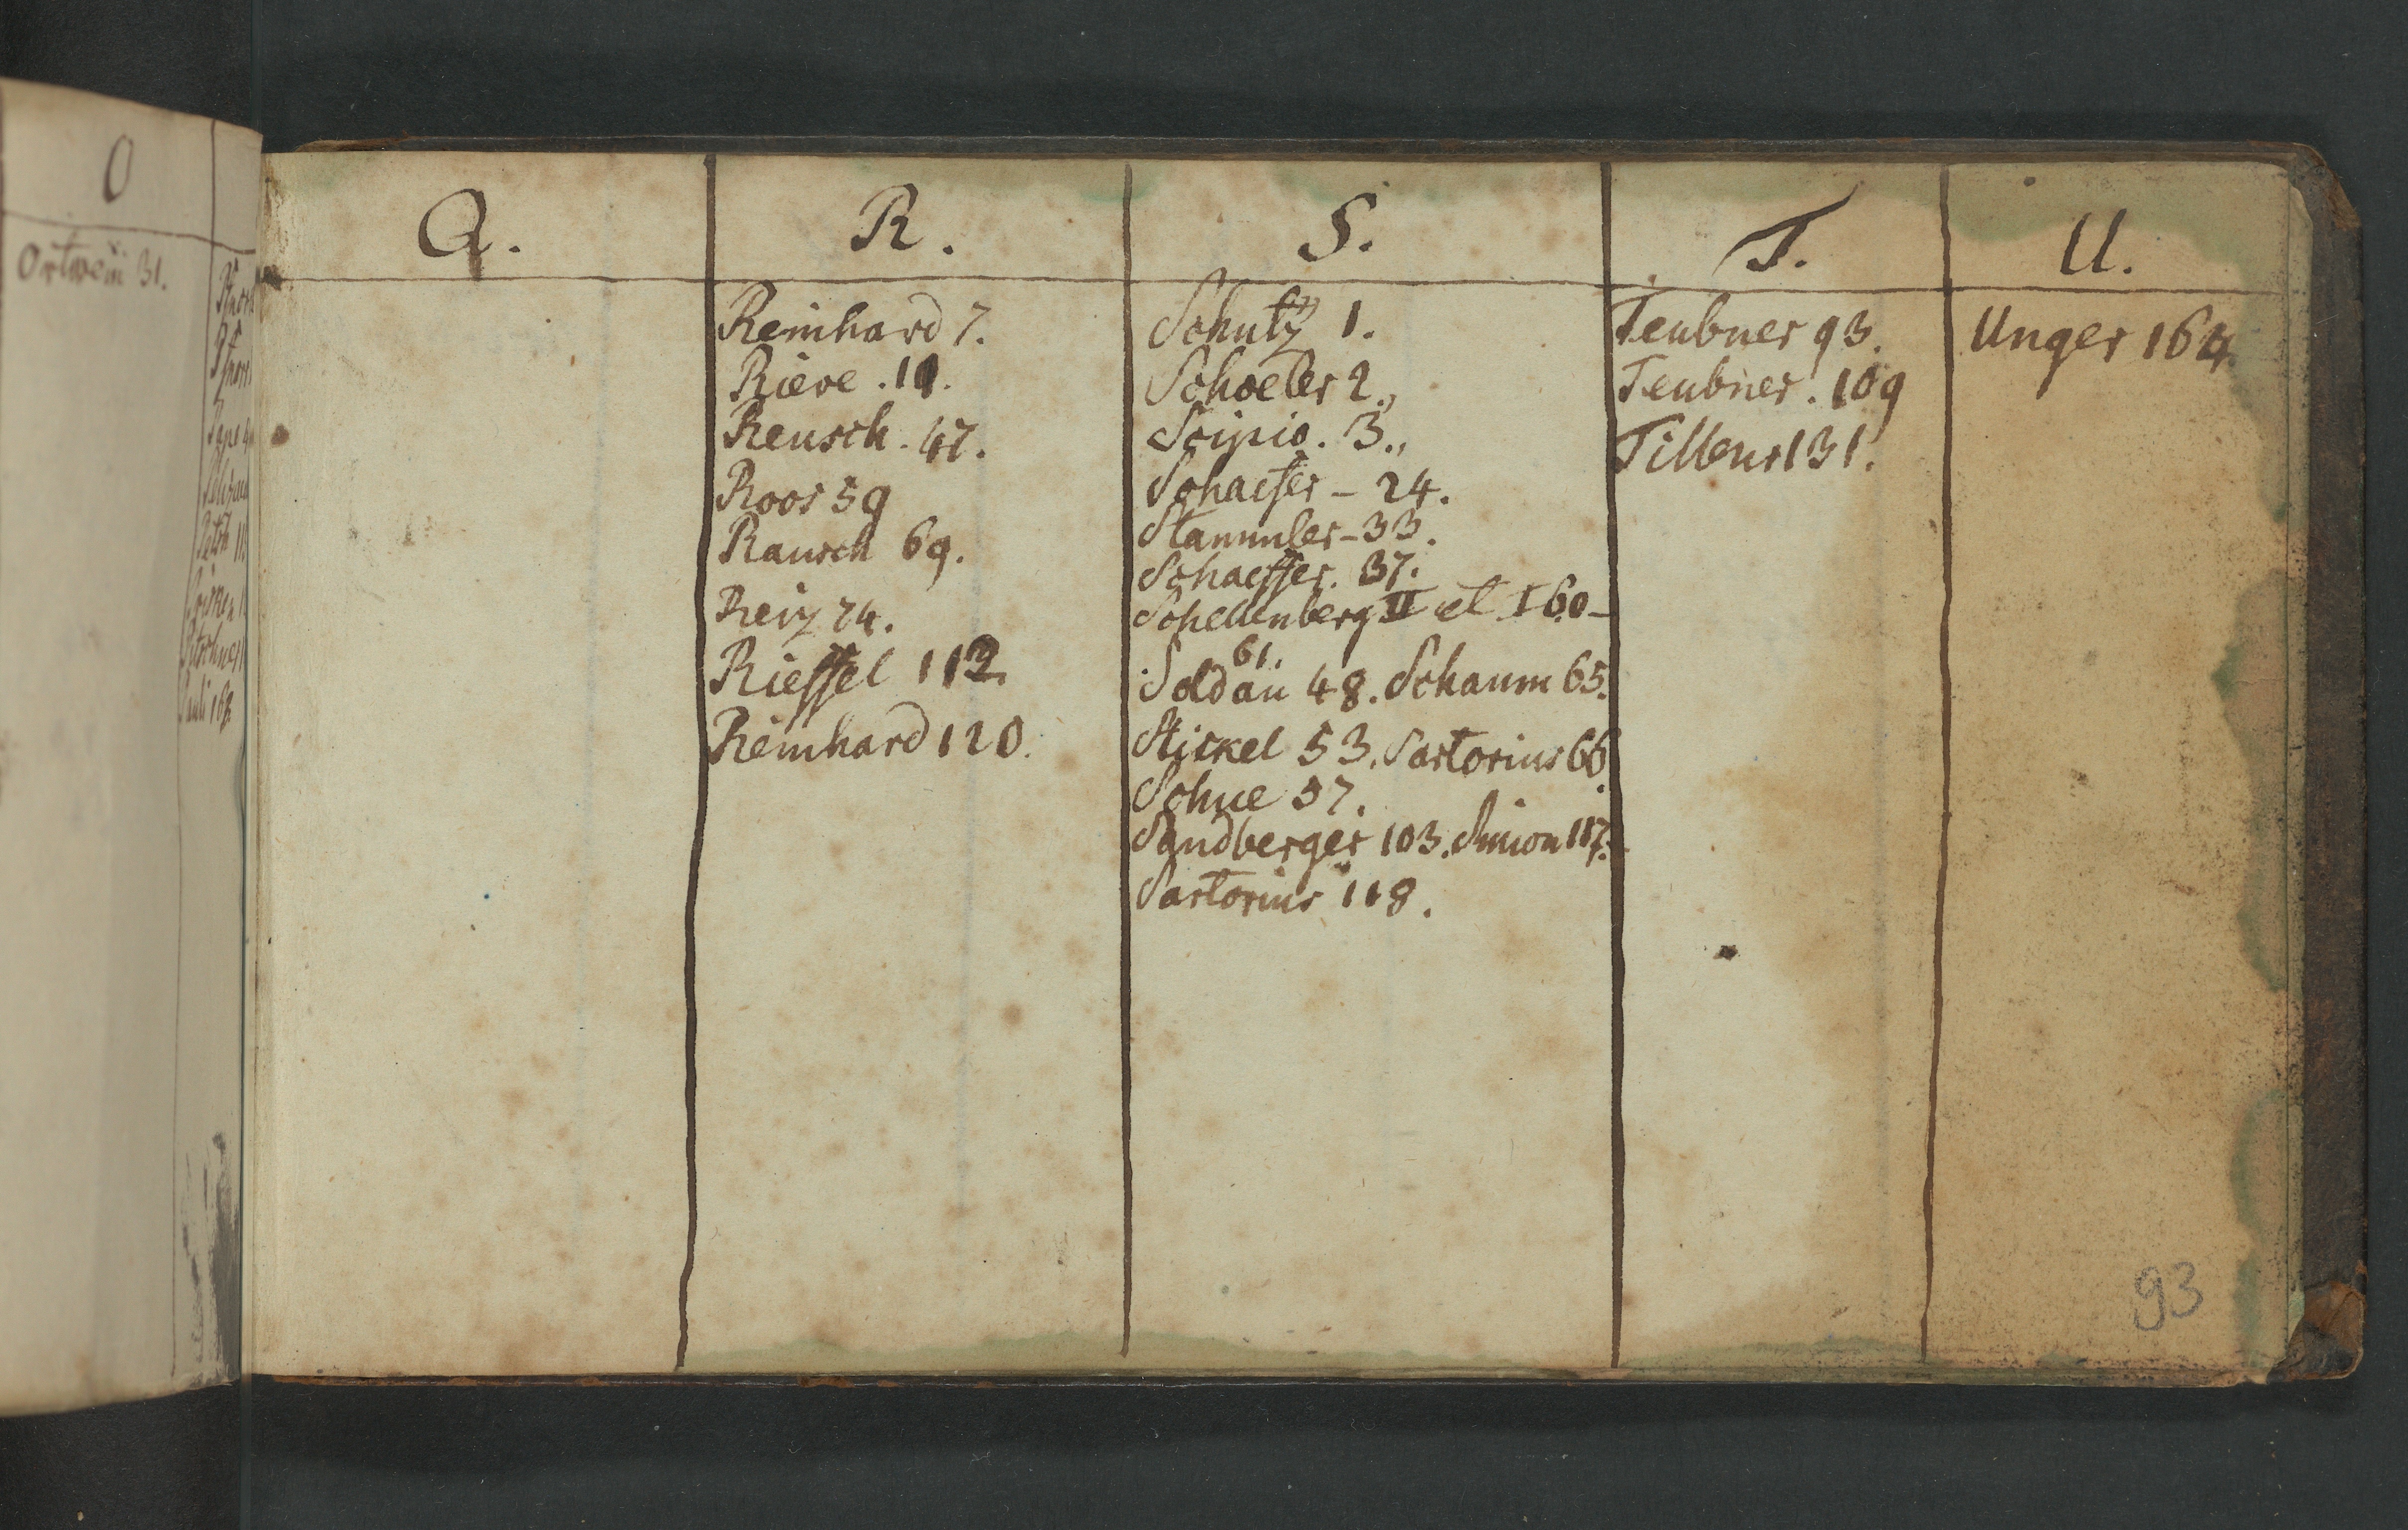 O
Ortwein 31.
Q.
R.
Reinhard 7.
Rieve . 10.
Reusch . 47.
Roos 59
Rausch 69.
Reiz 74.
Rieffel 112.
Reinhard 120.
S.
Schutz 1.
Schoeler 2.,
Scipio . 3.,
Schaefer - 24.
Stammler - 33.
Schaeffer . 37.
Schellenberg II et I 60 -
61.
Soldan 48. Schaum 65.
Stickel 53. Sartorius 66.
Schue 57.
Sandberger 103. Simon 117.
Sartorius 118.
T.
Teubner 93.
Teubner . 109
131.
U.
Unger 164.
93